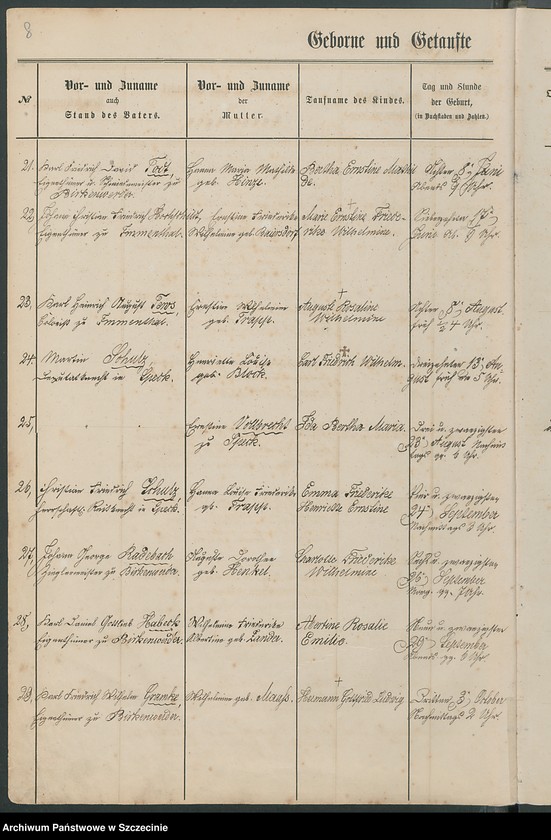 8
Geborne und Getaufte
№
Vor- und Zuname
auch
Stand des Vaters.
Vor- und Zuname
der
Mutter.
Taufname des Kindes.
Tag und Stunde
der Geburt,
(in Buchstaben und Zahlen.)
21. Karl Friedrich David Todt,
Eigenthümer u. Schmiedemeister zu
Birkenwerder.
Hanna Maria Mathilde
geb. Hinze.
Bertha Ernstine Mathil
de.
Achter 8. Juni
Abends 9 Uhr.
22. Johann Christian Friedrich
Eigenthümer zu Immenthal.
Ernstine Friederike
Wilhelmine geb.
Marie Ernstine Friede-
rike Wilhelmine.
Siebzehnter
Juni Ab. 9 Uhr.
23. Karl Heinrich August
zu Immenthal.
Ernstine Wilhelmine
geb.
Auguste Rosaline
Wilhelmine
Achter 8. August
früh 1/2 4 Uhr.
24. Martin Schulz,
Deputatknecht in Speck.
Henriette Louise
geb. Block.
Carl Friedrich Wilhelm.
Dreizehnter 13. Au-
gust früh um 5 Uhr.
25.
Ernstine Vollbrecht
zu Speck.
Ida Bertha Maria.
Drei u. zwanzigster
23. August Nachmit
tags 6 Uhr.
26. Christian Friedrich Schulz,
in Speck.
Hanna Louise Friederike
geb.
Emma Friederike
Henriette Ernstine
Vier u. zwanzigster
24. September
Nachmittags 3 Uhr.
27. Johann George Radebach
Zieglermeister zu Birkenwerder.
Auguste Dorothee
geb. Henkel.
Charlotte Friederike
Wilhelmine
Sechs u. zwanzigster
26. September
Morg. 7 Uhr.
28. Karl Daniel Gottlieb Habeck
Eigenthümer zu Birkenwerder.
Wilhelmine Friederike
Albertine geb.
Albertine Rosalie
Emilie.
Neun u. zwanzigster
29. September
Abends 6 Uhr.
29. Karl Friedrich Wilhelm
Eigenthümer zu Birkenwerder.
Wilhelmine geb. Maass.
Hermann Gottfried Ludwig
Dritter 3. October
Nachmittags 2 Uhr.
Archiwum Państwowe w Szczecinie